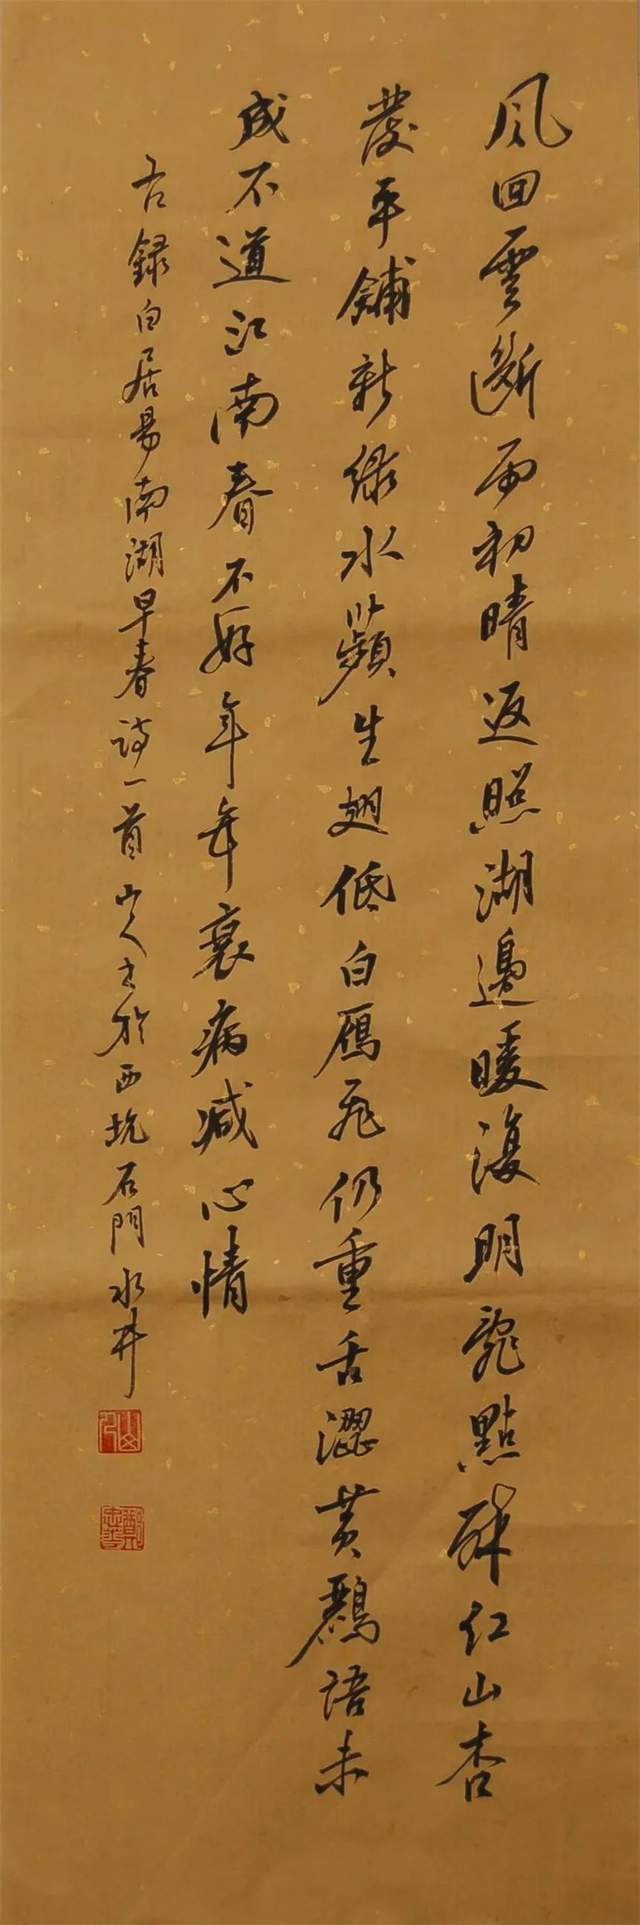 風回雲斷雨初晴返照湖邊暖復明亂點碎紅山杏
發平鋪新綠水蘋生翅低白雁飛仍重舌澀黃鸝語未
成不道江南春不好年年衰病減心情
右錄白居易南湖早春詩一首山人書於西坑石門水井